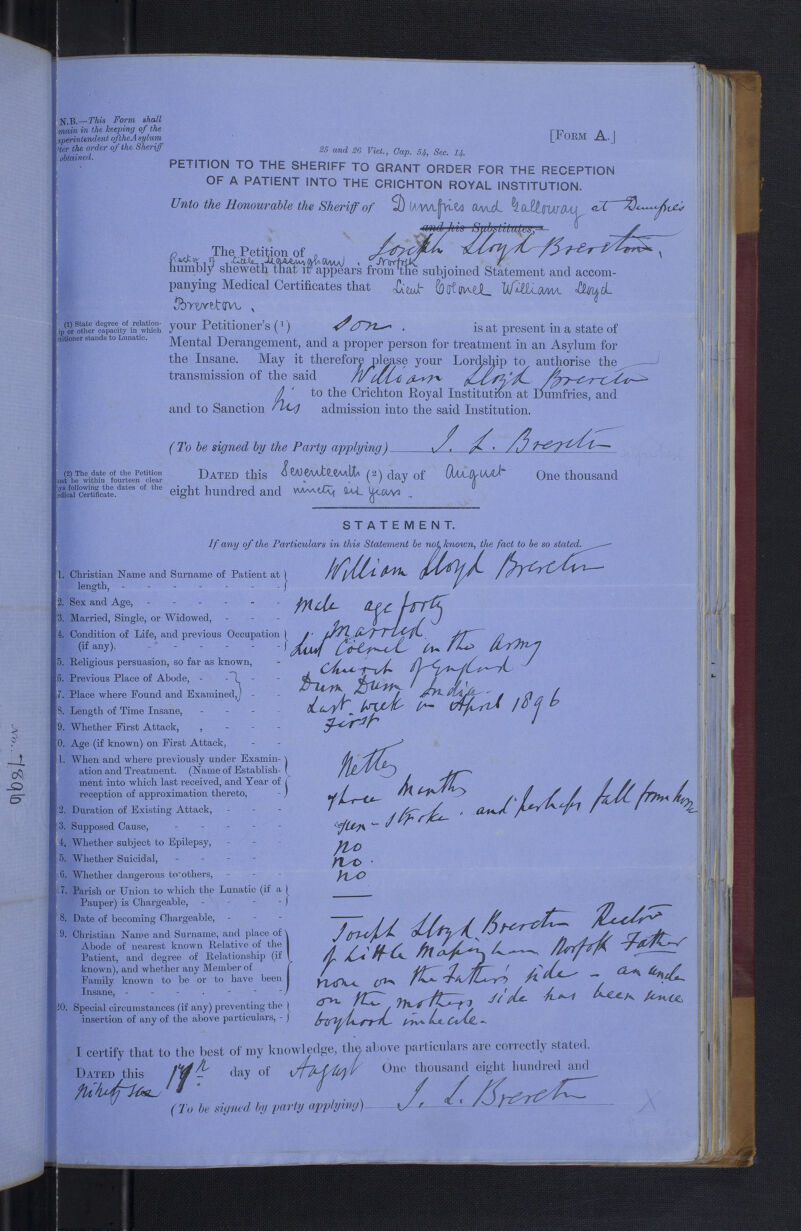 N.B.—This Form shall
main in the keeping of the
uperintendent of the Asylum
fter the order of the Sheriff
obtained.
[FORM A.]
25 and 26 Vict., Cap. 54, Sec. 14.
PETITION TO THE SHERIFF TO GRANT ORDER FOR THE RECEPTION
OF A PATIENT INTO THE CRICHTON ROYAL INSTITUTION.
Unto the Honourable the Sheriff of Dumfries and Galloway at Dumfries
and his Substitutes,
The Petition of Joseph Lloyd Brereton,
Rector of Little Massingham, Norfolk
humbly sheweth that it appears from the subjoined Statement and accom-
panying Medical Certificates that Lieut Colonel William Lloyd
Brereton,
(1) State degree of relation-
ip or other capacity in which
etitioner stands to Lunatic.
your Petitioner's (1) son. is at present in a state of
Mental Derangement, and a proper person for treatment in an Asylum for
the Insane. May it therefore please your Lordship to authorise the
transmission of the said William Lloyd Brereton
to the Crichton Royal Institution at Dumfries, and
and to Sanction his admission into the said Institution.
(To be signed by the Party applying) J. L. Brereton
(2) The date of the Petition
ust be within fourteen clear
ys following the dates of the
edical Certificate.
DATED this Seventeenth (2) day of August One thousand
eight hundred and ninety six years.
STATEMENT.
If any of the Particulars in this Statement be not known, the fact to be so stated.
1. Christian Name and Surname of Patient at length, - William Lloyd Brereton
2. Sex and Age, - Male age forty
3. Married, Single, or Widowed, - Married
4. Condition of Life, and previous Occupation (if any). - Lieut Colonel in the Army
5. Religious persuasion, so far as known, - Church of England
6. Previous Place of Abode, - Dum Dum India
7. Place where Found and Examined,
8. Length of Time Insane, - Last week in April 1896
9. Whether First Attack, - First
0. Age (if known) on First Attack, -
1. When and where previously under Examin-
ation and Treatment. (Name of Establish-
ment into which last received, and Year of
reception of approximation thereto, - Netley
2. Duration of Existing Attack, - Three Months
3. Supposed Cause, - stroke. and perhaps fall from horse
4. Whether subject to Epilepsy, - no
5. Whether Suicidal, - no.
6. Whether dangerous to others, - no
17. Parish or Union to which the Lunatic (if a
Pauper) is Chargeable, - —
8. Date of becoming Chargeable, - —
9. Christian Name and Surname, and place of
Abode of nearest known Relative of the
Patient, and degree of Relationship (if
known), and whether any Member of
Family known to be or to have been
Insane, -
Joseph Lloyd Brereton Rector
of Little Massingham Norfolk Father
none on the Father's side - an uncle
on the mothers side has been since
boyhood imbecile.
20. Special circumstances (if any) preventing the
insertion of any of the above particulars, -
I certify that to the best of my knowledge, the above particulars are correctly stated.
DATED this 17th day of August One thousand eight hundred and
Ninety Six
(To be signed by party applying) J. L. Brereton
1896